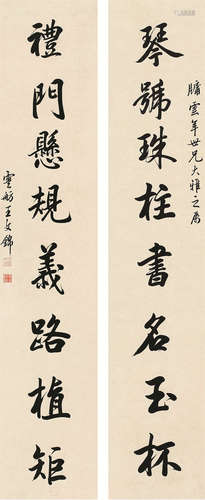 牖雲年世兄大雅之属
琴號珠柱書名玉杯
禮門懸規義路植矩
雪舫王文錦